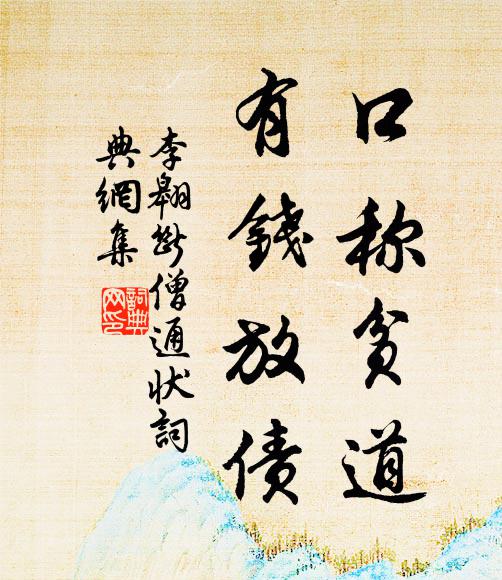 口称贫道
有錢放債
李翱断僧通状詞
典網集
詞典
网印